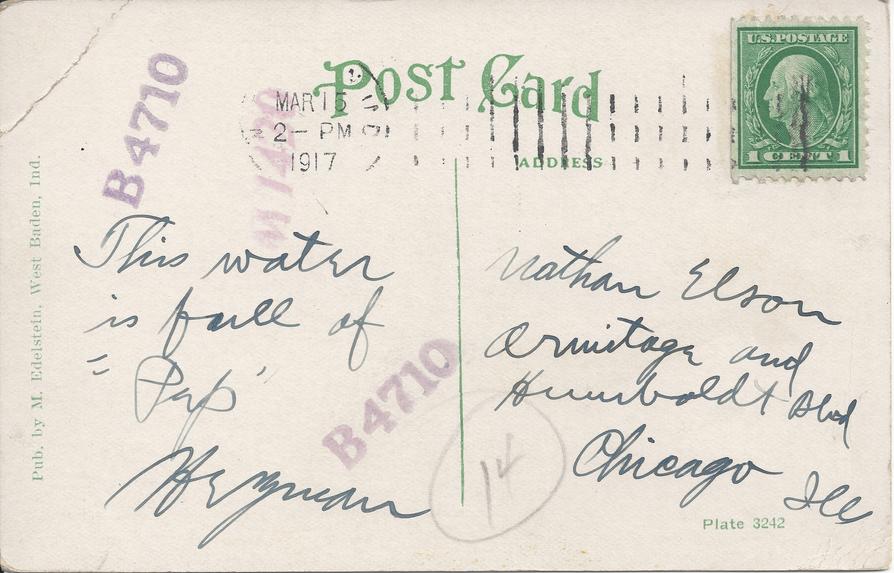 Post Card
MAR 15
2 - PM
1917
U.S. POSTAGE
1 CENT 1
ADDRESS
B4710
Pub. by M. Edelstein, West Baden, Ind.
This water
is full of
"Pep"
Heyman
B4710
14
Nathan Elson
Armitage and
Humboldt Blvd
Chicago
Ill
Plate 3242